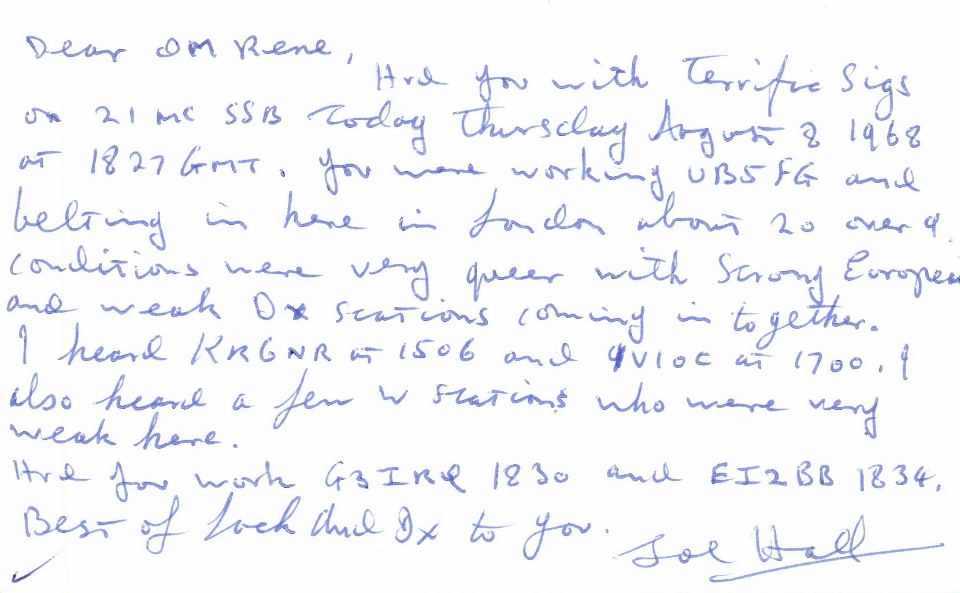 Dear OM Rene,
Hrd you with Terrific Sigs
on 21 MC SSB Today Thursday August 8 1968
at 1827 GMT. You were working UB5FG and
belting in here in London about 20 over 9.
Conditions were very queer with Strong European
and weak Dx stations coming in together.
I heard KR6NR at 1506 and 9V1OC at 1700. I
also heard a few W stations who were very
weak here.
Hrd you work G3IRQ 1830 and EI2BB 1834.
Best of luck And Dx to you.
Joe Hall